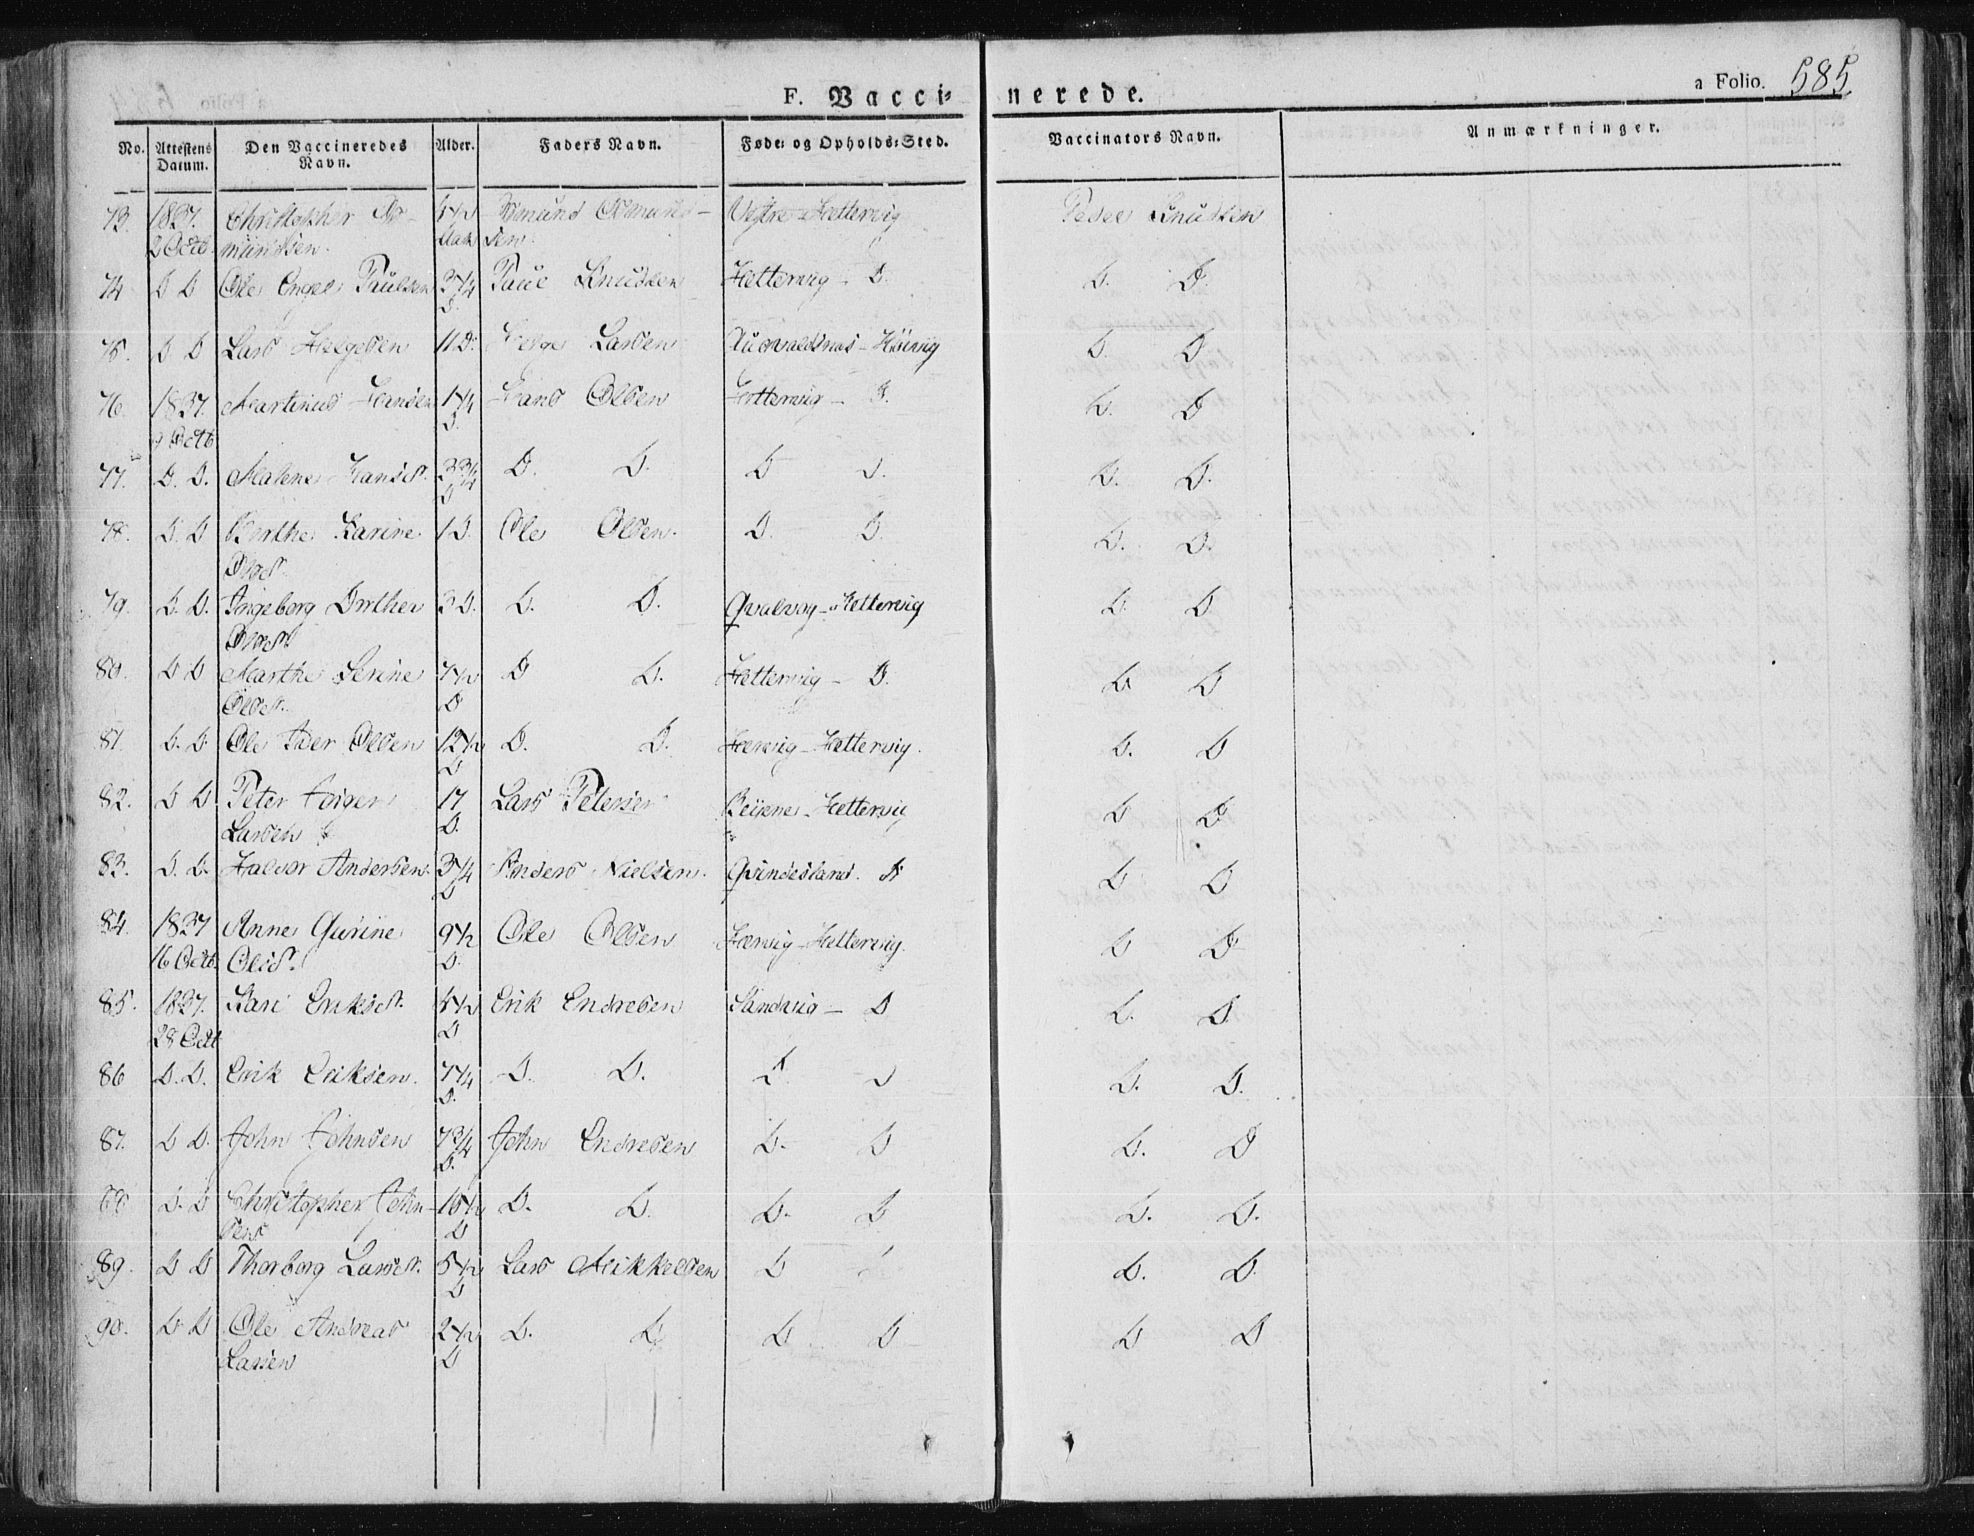 F. Vacci= nerede. a Folio. 585.
No. Attestens Datum. Den Vaccineredes Navn. Alder. Faders Navn. Føde= og Opholds=Sted. Vaccinators Navn. Anmærkninger.
73. 1837. Christopher 5 1/2 Osmund Osmund- Vestre Hettervig Peder Knudsen
2 Octb. mundsen. Aar sen.
74 D D Ole Engel Paulsen 3 1/4 Paul Knudsen Hettervig - D. D. D.
D.
75. D D Lars Helgesen 11 D. Helge Larsen Høievig D. D
76. 1837. Martinus Hansen 1 1/4 Hans Olsen Hettervig - D. D. D
9 Octb D.
77. D. D. Malene Hansd. 3 3/4 D. D. D D. D. D.
D
78. D. D Berthe Karine 1 D. Ole Olsen. D. D. D. D.
Olsd.
79. D. D. Ingeborg Dorthea 3 D. D. D. Qvalvaag - Hettervig D. D
Olsd.
80. D D Marthe Serine 7 1/2 D D. Hettervig - D. D D
Olsd. D
81. D. D Ole Iver Olsen 12 1/2 D. D. Hervig - Hettervig. D. D
D
82. D D Peter 17 Lars Petersen Hettervig D D.
Larsen D.
83. D. D. Halvor Andersen. 3 1/4 Anders Nielsen. Qvindesland. D D D
D
84. 1837 Anne Gurine 9 1/2 Ole Olsen Hervig - Hettervig. D D
16 Octb. Olsd. D.
85. 1837. Kari Eriksd. 5 1/2 Erik Endresen Sandvig - D D. D
28 Octb D
86 D. D. Erik Eriksen. 7 1/4 D. D. D D D. D.
D.
87. D D. John Johnsen 7 3/4 John Endresen D. D D. D
D.
88 D. D Christopher John- 10 1/2 D. D. D. D D. D.
sen D
89. D D Thorborg Larsd. 5 1/2 Lars Mikkelsen D D. D.
D
90. D D Ole Andreas 2 1/2 D. D. D D D D
Larsen D